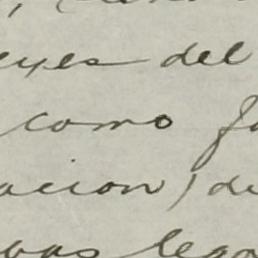 eyes del
como fa
acion) de
vas lega